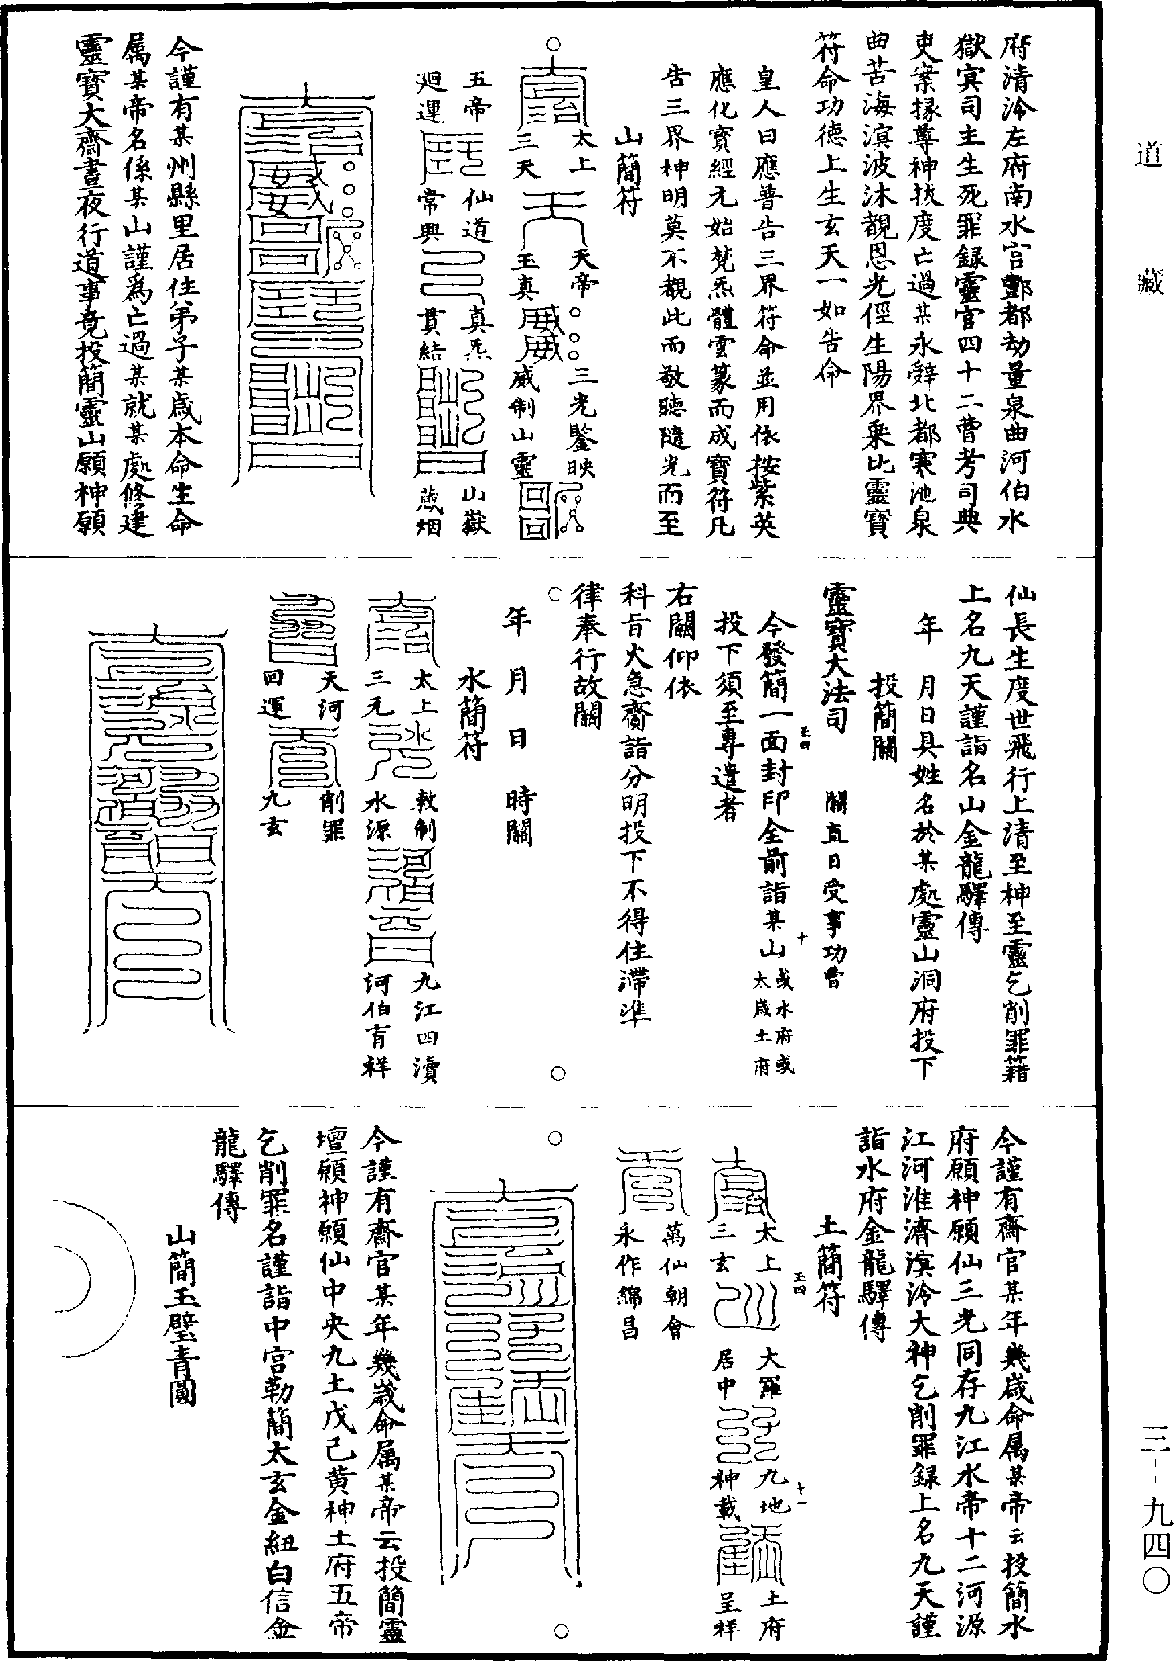 道藏
三--九四〇
府清泠左府南水官酆都劫量泉曲河伯水
獄㝠司主生死罪録靈官四十二曹考司典
吏案掾尊神扶度亡過某永辭北都寒池泉
曲苦海溟波沐覩恩光俓生陽界乗此靈寶
符命功德上生玄天一如告命
皇人曰應普告三界符命並用依按紫英
應化寶經元始梵炁體雲篆而成寶符凡
告三界神明莫不覩此而敬聽隨光而至
山簡符
太上
三天
天帝
玉真
三光鑒映
威制山靈
五帝
廻運
仙道
常興
真炁
貫結
山嶽
藏烟
今謹有某州縣里居住弟子某歲本命生命
属某帝名係某山謹為亡過某就某處修建
靈寶大齋晝夜行道事竟投簡靈山願神願
仙長生度世飛行上清至神至靈乞削罪籍
上名九天謹詣名山金龍驛傳
年 月日具姓名於某處靈山洞府投下
投簡關
靈寶大法司 關直日受事功曹
今發簡一面封印全前詣某山或水府或太歲土府
投下須至專遣者
右關仰依
科旨火急賫詣分明投下不得住滯準
律奉行故關
年 月 日 時關
水簡符
太上
三元
敕制
水源
九江四瀆
河伯育祥
天河
回運
削罪
九玄
今謹有齋官某年幾歲命属某帝云投簡水
府願神願仙三光同存九江水帝十二河源
江河淮濟溟泠大神乞削罪録上名九天謹
詣水府金龍驛傳
土簡符
太上
三玄
大羅
居中
九地
神載
土府
呈祥
萬仙朝會
永作綿昌
今謹有齋官某年幾歲命属某帝云投簡靈
壇願神願仙中央九土戊己黄神土府五帝
乞削罪名謹詣中宫勒簡太玄金紐白信金
龍驛傳
山簡玉璧青圓